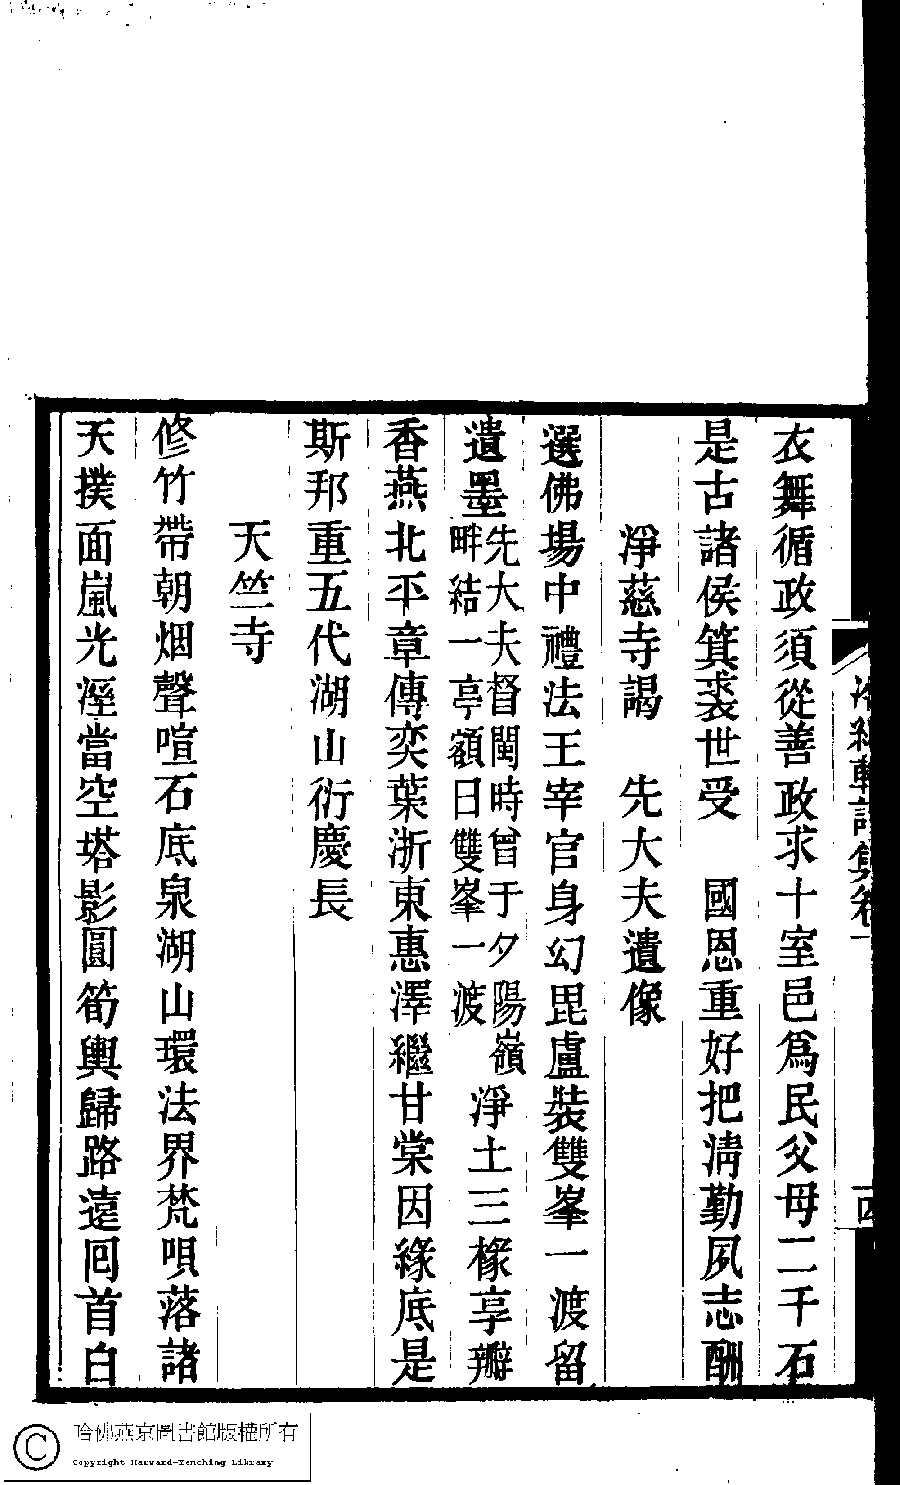 衣舞循政須從善政求十室邑爲民父母二千石
是古諸侯箕裘世受　國恩重好把淸勤夙志酬
淨慈寺謁　先大夫遺像
選佛場中禮法王宰官身幻毘盧裝雙峯一渡留
遺墨先大夫督閩時曾于夕陽嶺畔結一亭額曰雙峯一渡淨土三椽享瓣
香燕北平章傳奕葉浙東惠澤繼甘棠因緣底是
斯邦重五代湖山衍慶長
天竺寺
修竹帶朝烟聲喧石底泉湖山環法界梵唄落諸
天撲面嵐光溼當空塔影圓筍輿歸路遠囘首白
哈佛燕京圖書館版權所有
Copyright Harvard-Yenching Library